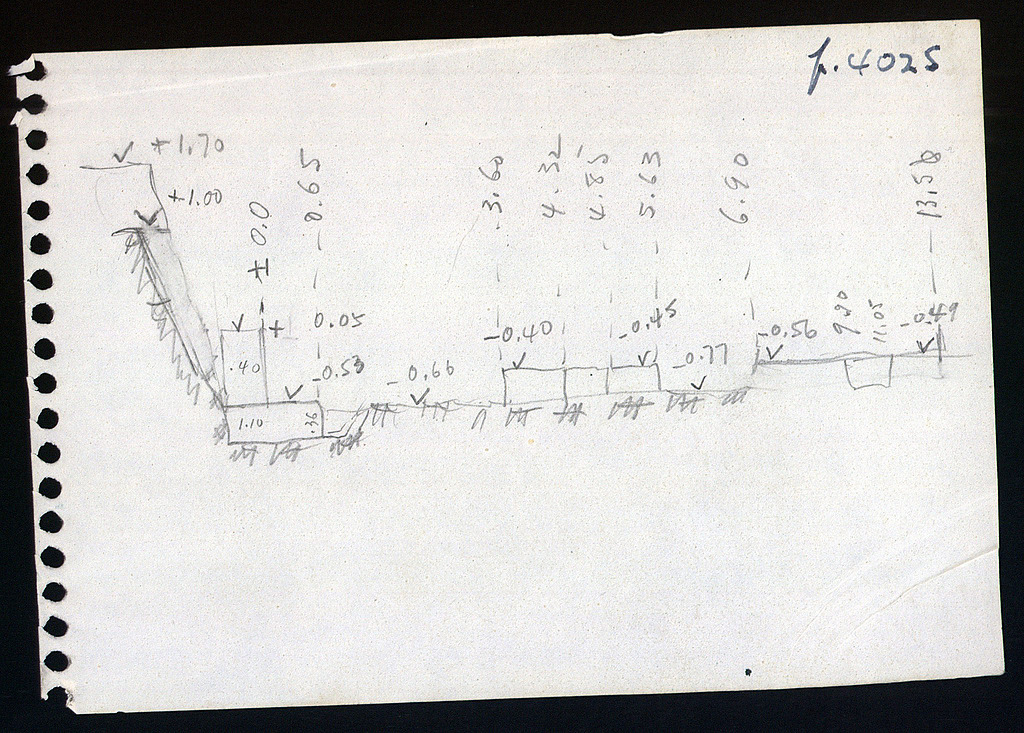 p.4025
+1.70
+1.00
±0.0
0.65
3.60
4.32
4.85
5.63
6.90
13.58
+ 0.05
-0.40
-0.45
-0.56
9.90
11.05
-0.49
.40
-0.53
-0.66
-0.77
1.10
.36